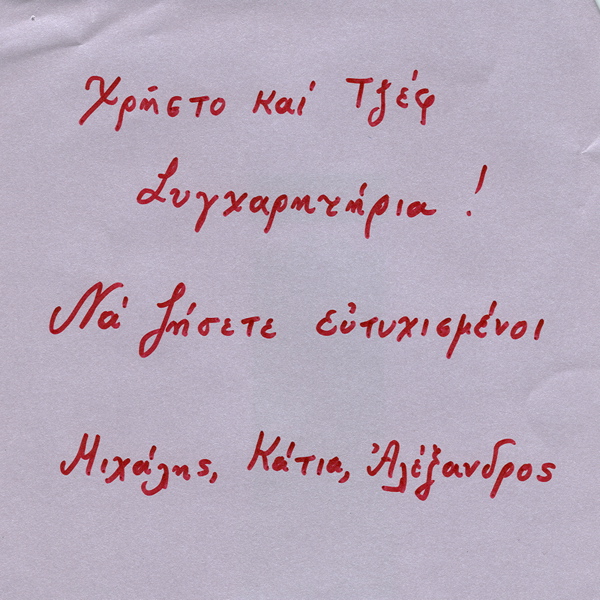 Χρῆστο καί Τζέφ
Συγχαρητήρια !
Νά ζήσετε εὐτυχισμένοι
Μιχάλης, Κάτια, Ἀλέξανδρος